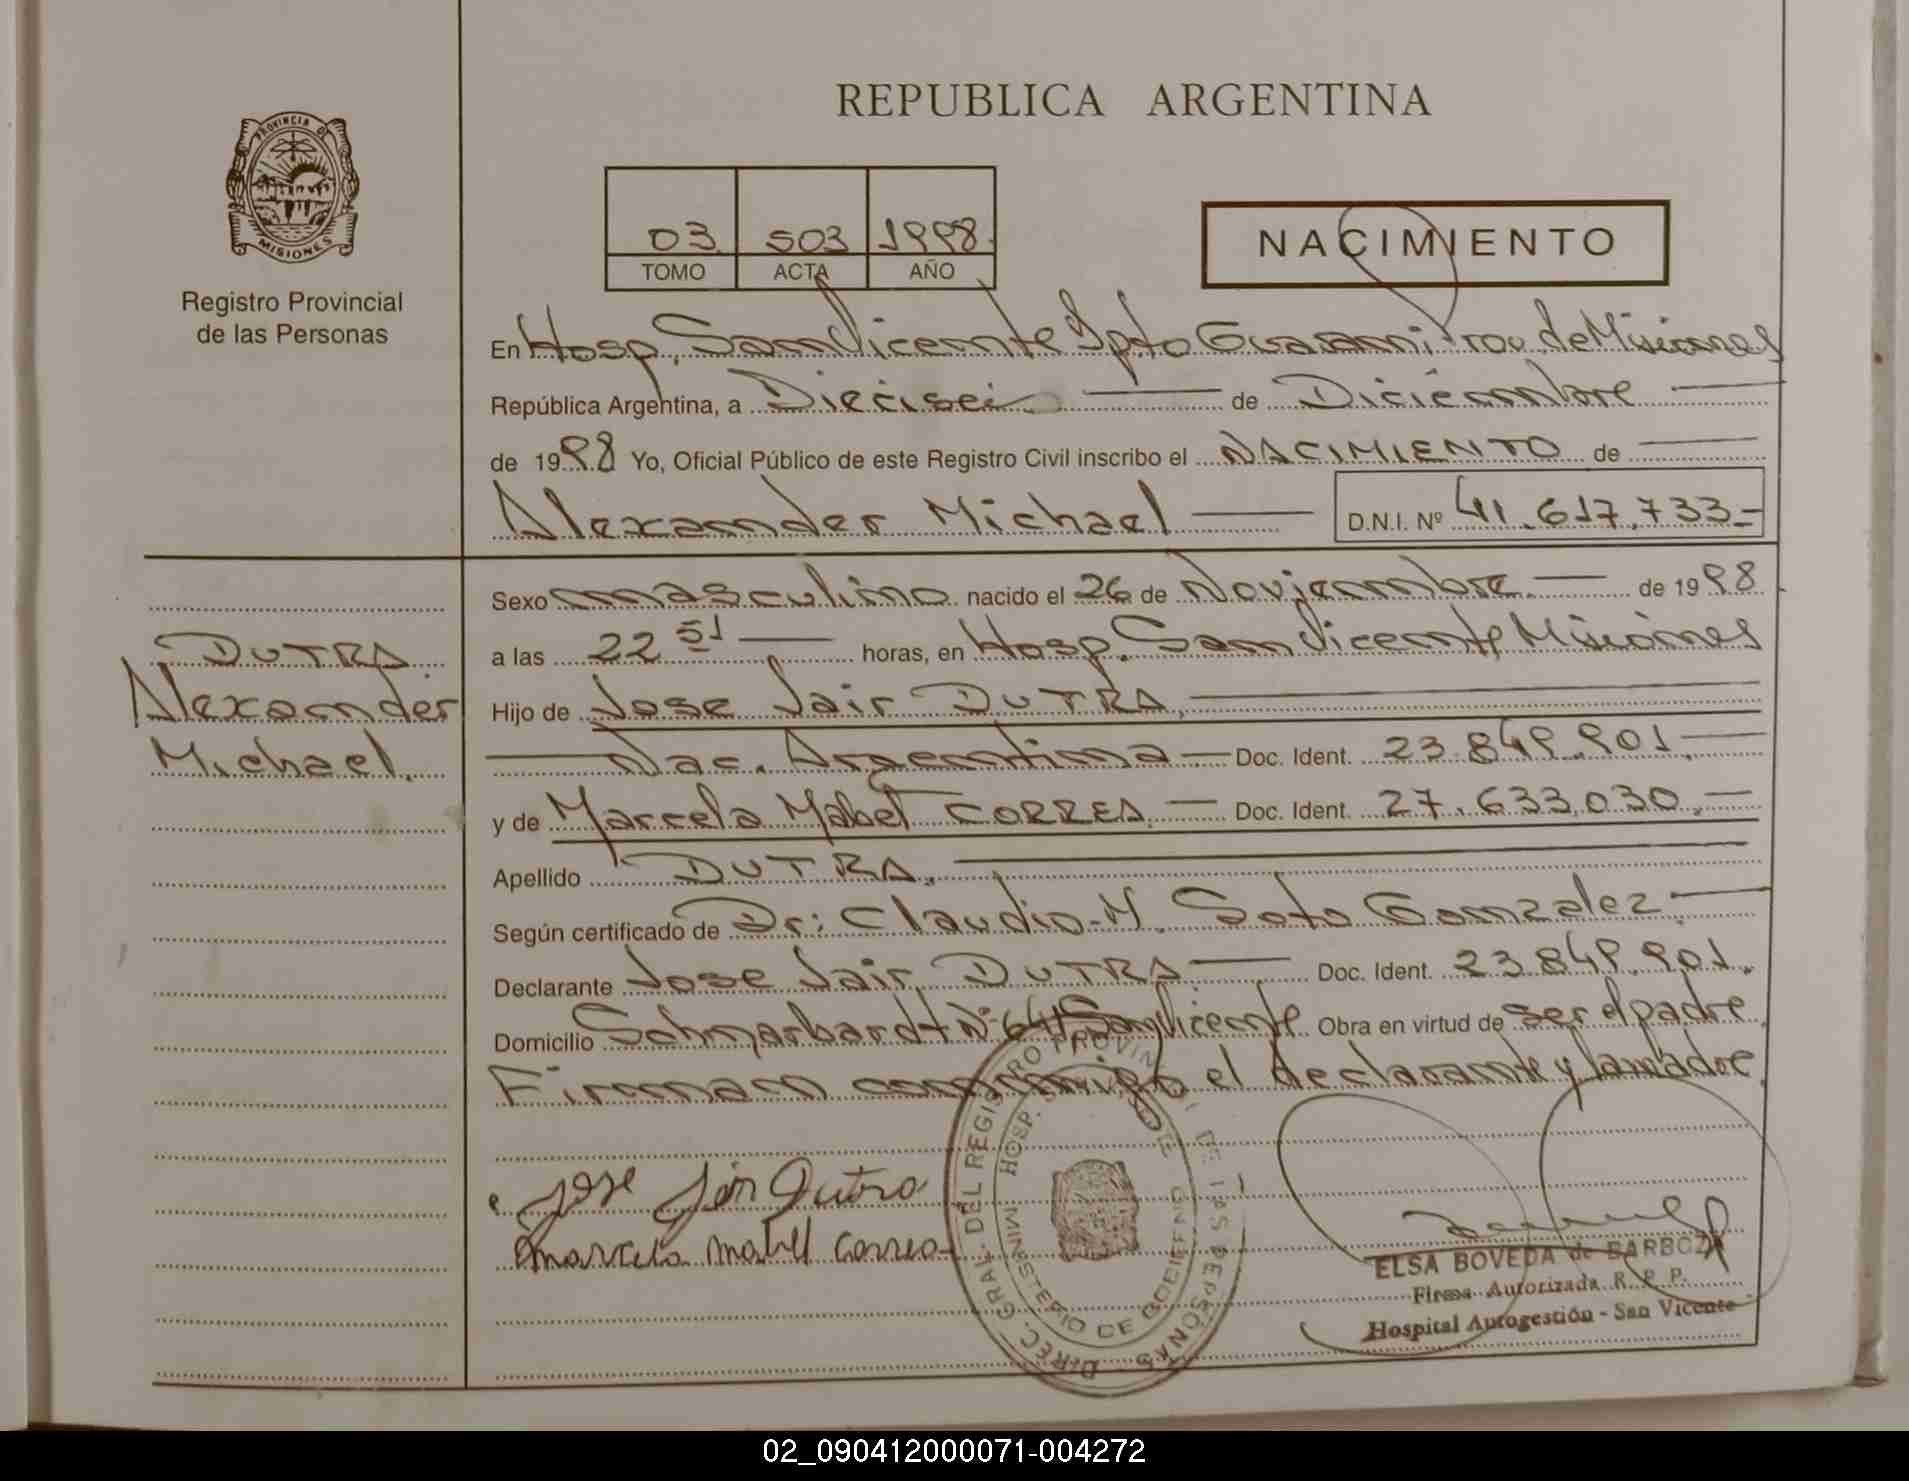 REPUBLICA ARGENTINA
PROVINCIA DE
MISIONES
Registro Provincial
de las Personas
03 503 1998
TOMO ACTA AÑO
NACIMIENTO
En Hosp. San Vicente Dpto Guarani Prov. de Misiones
República Argentina, a Dieciseis de Diciembre
de 1998 Yo, Oficial Público de este Registro Civil inscribo el NACIMIENTO de
Alexander Michael D.N.I. Nº 41.617.733-
DUTRA
Alexander
Michael.
Sexo masculino nacido el 26 de Noviembre. de 1998
a las 22 51 horas, en Hosp. San Vicente Misiones
Hijo de Jose Jair DUTRA,
Nac. Argentina Doc. Ident. 23.849.901.
y de Marcela Mabel CORREA. Doc. Ident. 27.633.030.
Apellido DUTRA.
Según certificado de Dr: Claudio M. Soto Gonzalez.
Declarante Jose Jair DUTRA Doc. Ident. 23.849.901.
Domicilio San Vicente. Obra en virtud de ser el padre.
Firman conmigo el declarante y la madre.
Jose Jair Dutra
Marcela Mabel Correa
DIREC. GRAL. DEL REGISTRO PROVINCIAL DE LAS PERSONAS
MINISTERIO DE GOBIERNO
HOSP.
ELSA BOVEDA de BARBOZA
Firma Autorizada R. P. P.
Hospital Autogestión - San Vicente
02_090412000071-004272